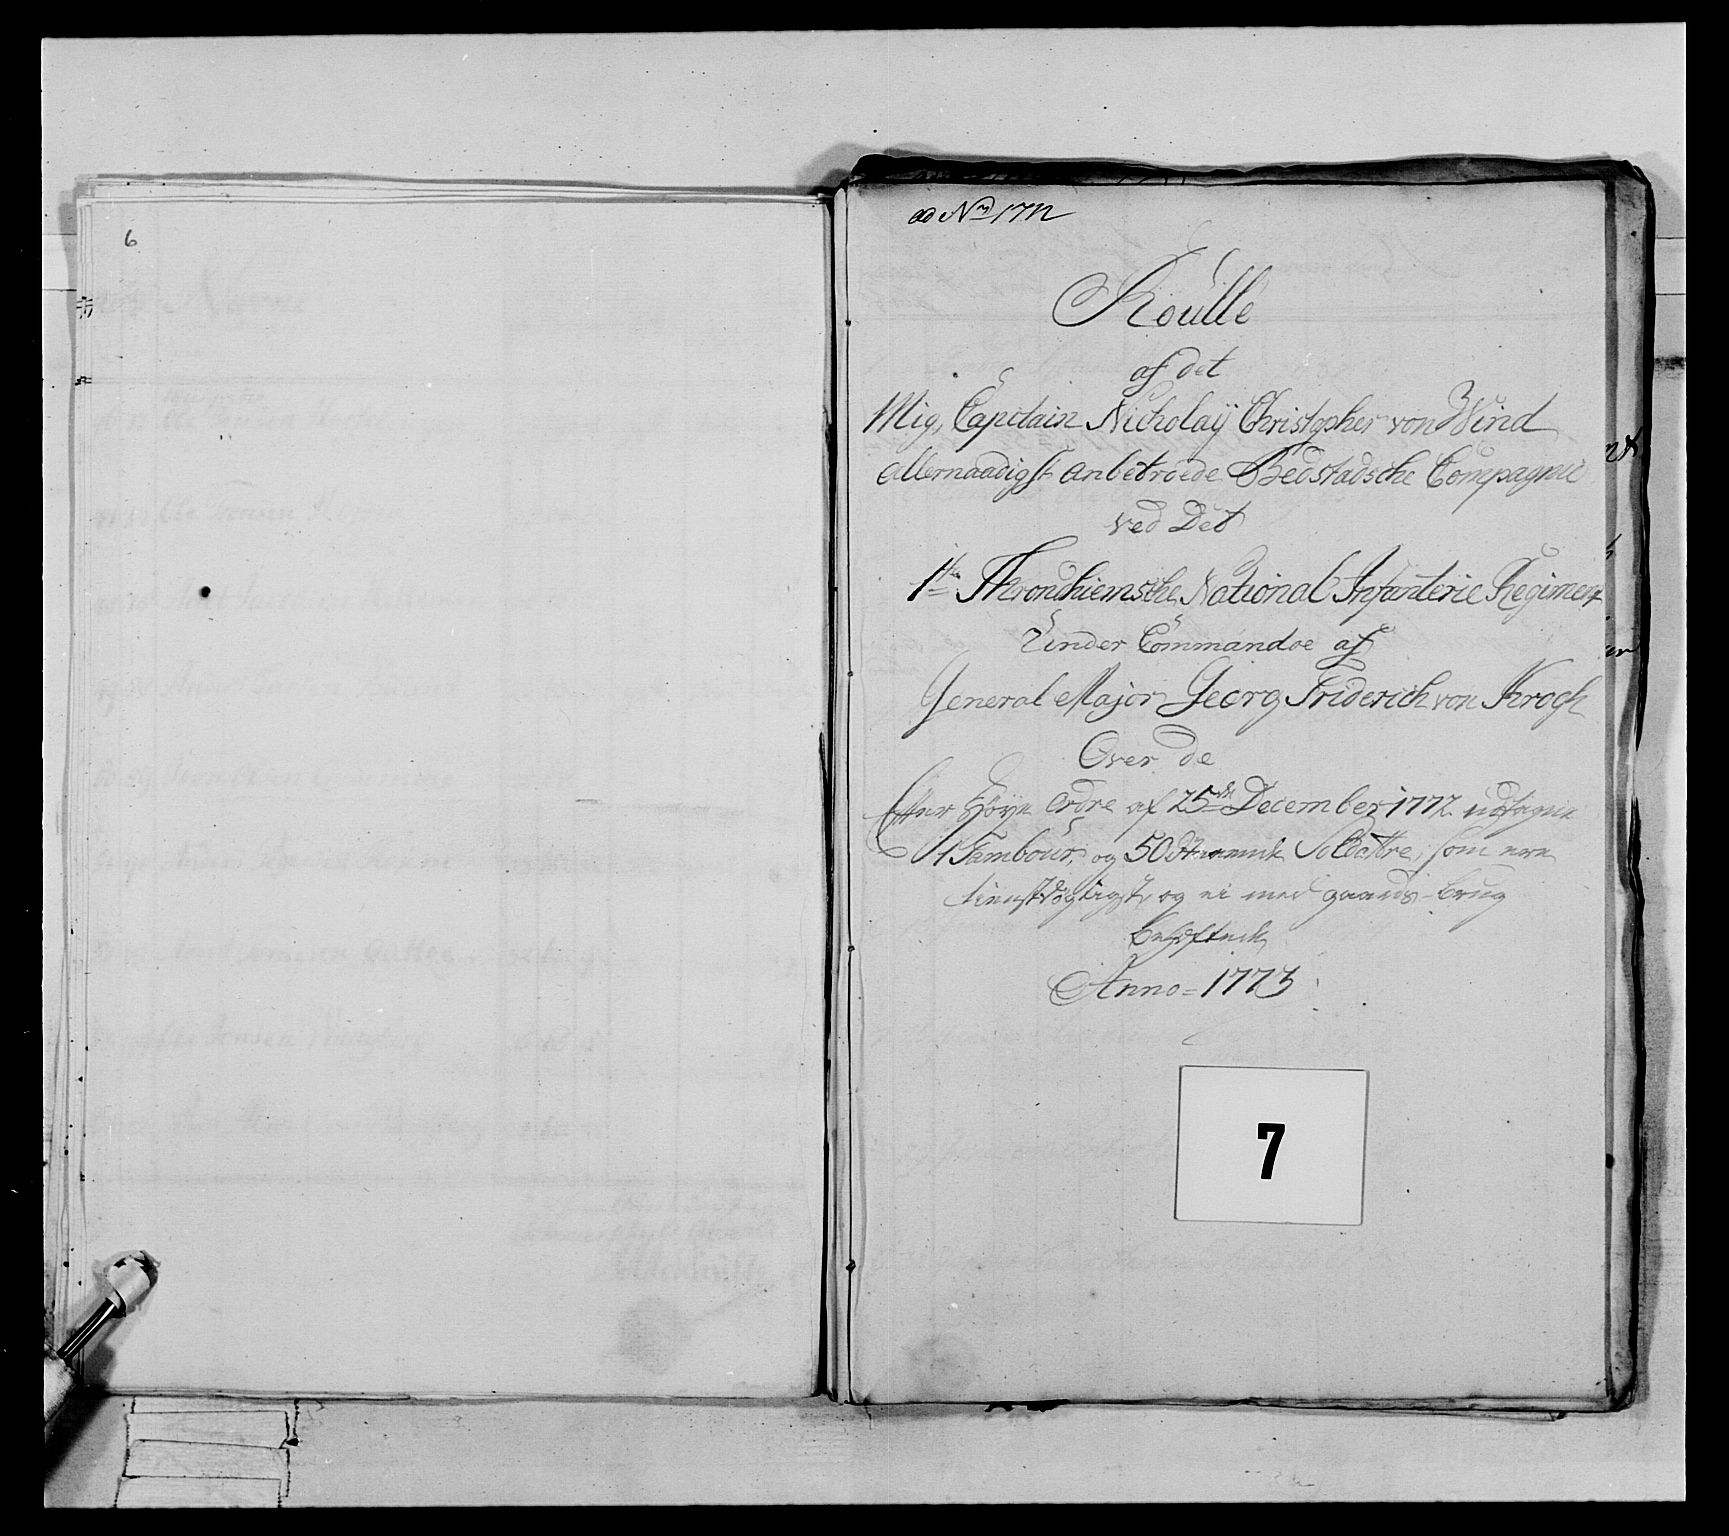 6
ad No 1712
Roulle
af det
Mig, Capitain Nicholaÿ Christopher von Wind
allernaadigst anbetroede Bedstadsche Compagnie
ved Det
1ste Tronhiemske National Infanterie Regiment
Under Commandoe af
General Major Georg Friderich von Krogh
Over de
Efter Høye Ordre af 25de December 1772 udtagne
1 Tambour, og 50 Soldattre, som ere
tienstdygtigst, og ei med gaards-brug
behæftede
Anno = 1773
7